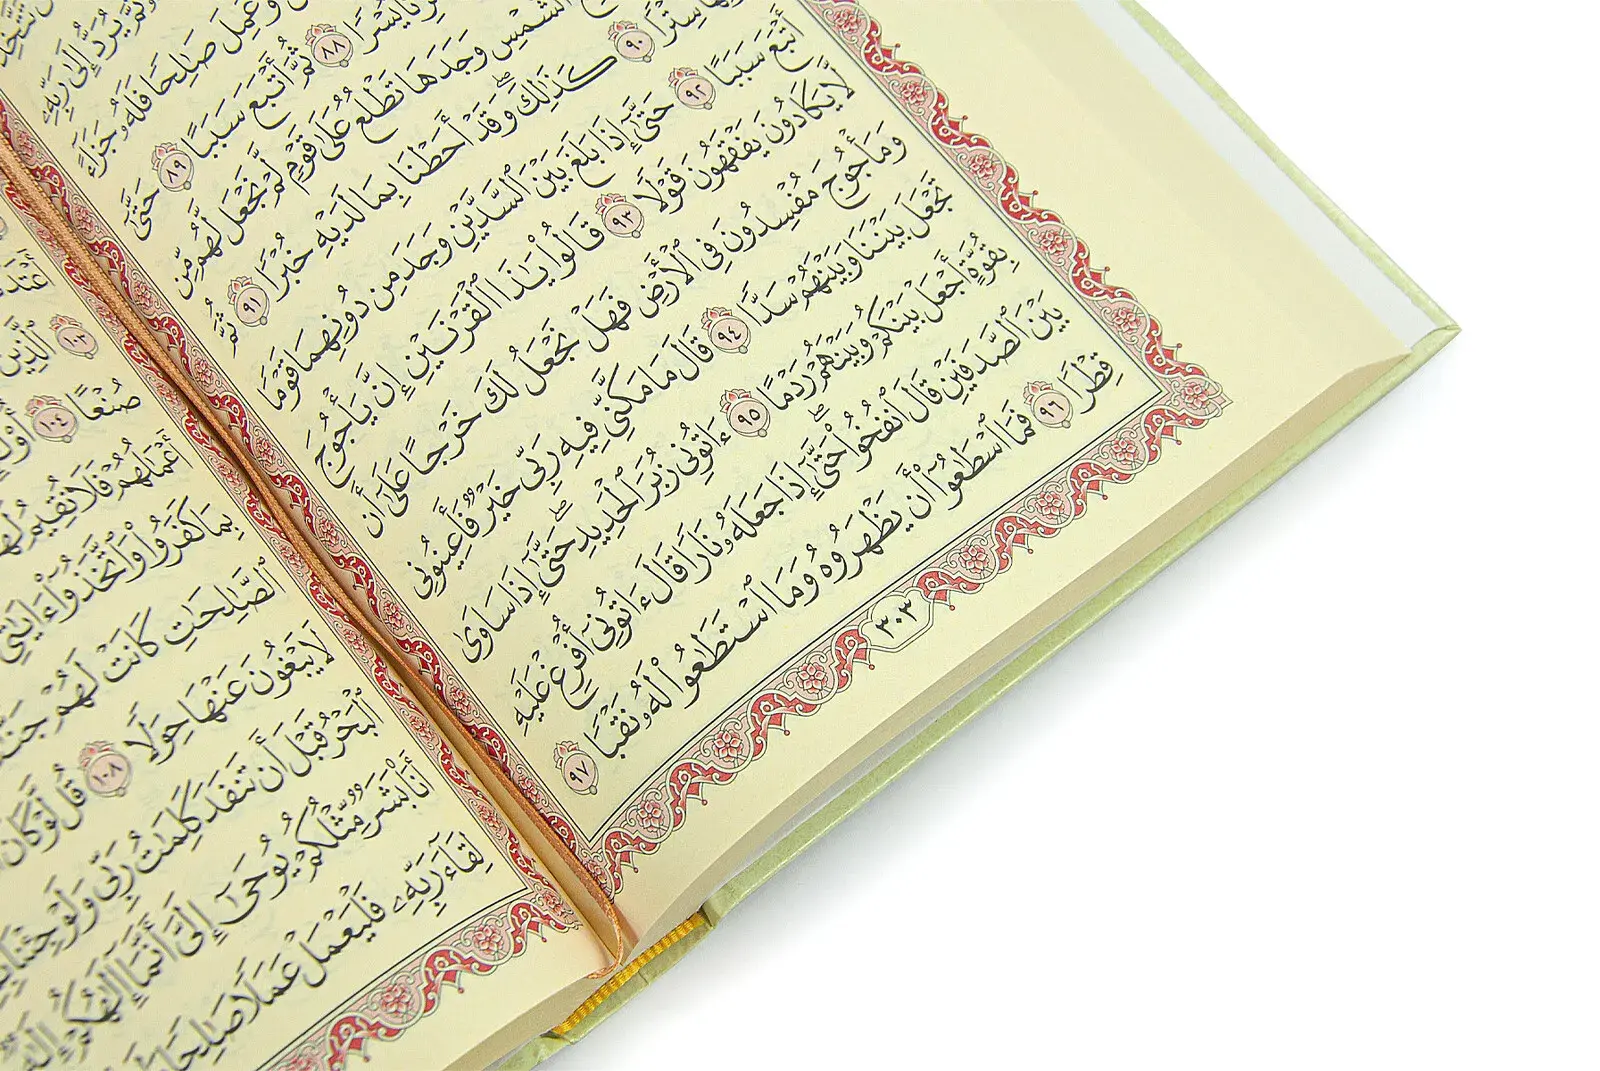 ثُمَّ يُرَدُّ إِلَىٰ رَبِّهِۦ
وَعَمِلَ صَٰلِحًا فَلَهُۥ جَزَآءً
يُسْرًا ٨٨ ثُمَّ أَتْبَعَ سَبَبًا ٨٩ حَتَّىٰٓ
ٱلشَّمْسِ وَجَدَهَا تَطْلُعُ عَلَىٰ قَوْمٍ لَّمْ نَجْعَل لَّهُم مِّن
سِتْرًا ٩٠ كَذَٰلِكَۖ وَقَدْ أَحَطْنَا بِمَا لَدَيْهِ خُبْرًا ٩١ ثُمَّ
أَتْبَعَ سَبَبًا ٩٢ حَتَّىٰٓ إِذَا بَلَغَ بَيْنَ ٱلسَّدَّيْنِ وَجَدَ مِن دُونِهِمَا قَوْمًا
لَّا يَكَادُونَ يَفْقَهُونَ قَوْلًا ٩٣ قَالُوا۟ يَٰذَا ٱلْقَرْنَيْنِ إِنَّ يَأْجُوجَ
وَمَأْجُوجَ مُفْسِدُونَ فِى ٱلْأَرْضِ فَهَلْ نَجْعَلُ لَكَ خَرْجًا عَلَىٰٓ أَن
تَجْعَلَ بَيْنَنَا وَبَيْنَهُمْ سَدًّا ٩٤ قَالَ مَا مَكَّنِّى فِيهِ رَبِّى خَيْرٌ فَأَعِينُونِى
بِقُوَّةٍ أَجْعَلْ بَيْنَكُمْ وَبَيْنَهُمْ رَدْمًا ٩٥ ءَاتُونِى زُبَرَ ٱلْحَدِيدِۖ حَتَّىٰٓ إِذَا سَاوَىٰ
بَيْنَ ٱلصَّدَفَيْنِ قَالَ ٱنفُخُوا۟ۖ حَتَّىٰٓ إِذَا جَعَلَهُۥ نَارًا قَالَ ءَاتُونِىٓ أُفْرِغْ عَلَيْهِ
قِطْرًا ٩٦ فَمَا ٱسْطَٰعُوٓا۟ أَن يَظْهَرُوهُ وَمَا ٱسْتَطَٰعُوا۟ لَهُۥ نَقْبًا ٩٧
٣٠٣
١٠٣ ٱلَّذِينَ
صُنْعًا ١٠٤
أَعْمَٰلُهُمْ فَلَا نُقِيمُ
بِمَا كَفَرُوا۟ وَٱتَّخَذُوٓا۟ ءَايَٰتِى
ٱلصَّٰلِحَٰتِ كَانَتْ لَهُمْ
لَا يَبْغُونَ عَنْهَا حِوَلًا ١٠٨ قُل لَّوْ كَانَ
ٱلْبَحْرُ قَبْلَ أَن تَنفَدَ كَلِمَٰتُ رَبِّى وَلَوْ جِئْنَا
أَنَا۠ بَشَرٌ مِّثْلُكُمْ يُوحَىٰٓ إِلَىَّ أَنَّمَآ إِلَٰهُكُمْ
لِقَآءَ رَبِّهِۦ فَلْيَعْمَلْ عَمَلًا صَٰلِحًا